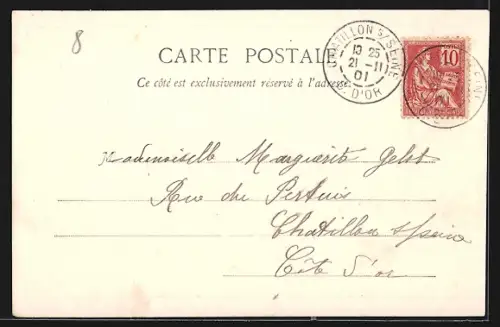 8
CARTE POSTALE
Ce côté est exclusivement réservé à l'adresse
CHATILLON S/SEINE
10 25
21 -11
01
D'OR
10
Mademoiselle Marguerite Gelot
Rue du Pertuis
Chatillon s/Seine
Côte d'or